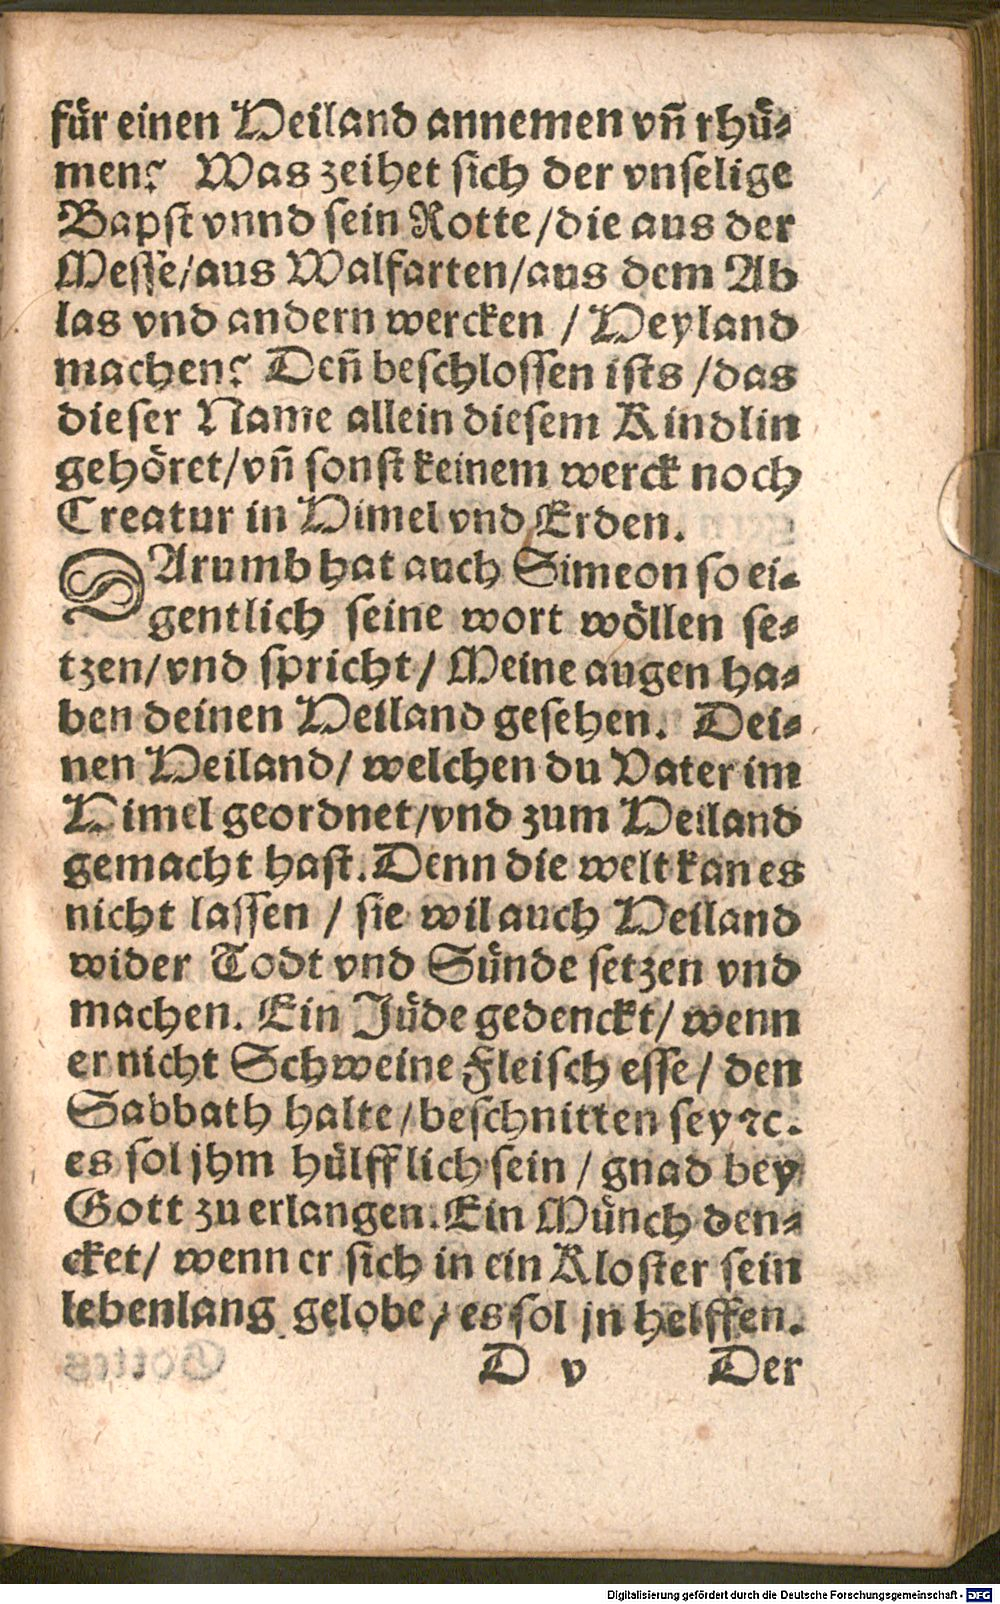 fuͤr einen Heiland annemen vñ rhuͤ⸗
men? Was zeihet sich der vnselige
Bapst vnnd sein Rotte/die aus der
Messe/aus Walfarten/aus dem Ab
las vnd andern wercken / Heyland
machen? Deñ beschlossen ists /das
dieser Name allein diesem Kindlin
gehoͤret/vñ sonst keinem werck noch
Creatur in Himel vnd Erden.
DArumb hat auch Simeon so ei⸗
gentlich seine wort woͤllen se⸗
tzen/vnd spricht/ Meine augen ha⸗
ben deinen Heiland gesehen. Dei⸗
nen Heiland/ welchen du Vater im
Himel geordnet/vnd zum Heiland
gemacht hast. Denn die welt kan es
nicht lassen / sie wil auch Heiland
wider Todt vnd Suͤnde setzen vnd
machen. Ein Juͤde gedenckt/ wenn
er nicht Schweine Fleisch esse/ den
Sabbath halte/beschnitten sey ꝛc.
es sol jhm huͤlfflich sein / gnad bey
Gott zu erlangen. Ein Muͤnch den⸗
cket/ wenn er sich in ein Kloster sein
lebenlang gelobe/ es sol jn helffen.
D v Der
Digitalisierung gefördert durch die Deutsche Forschungsgemeinschaft - DFG